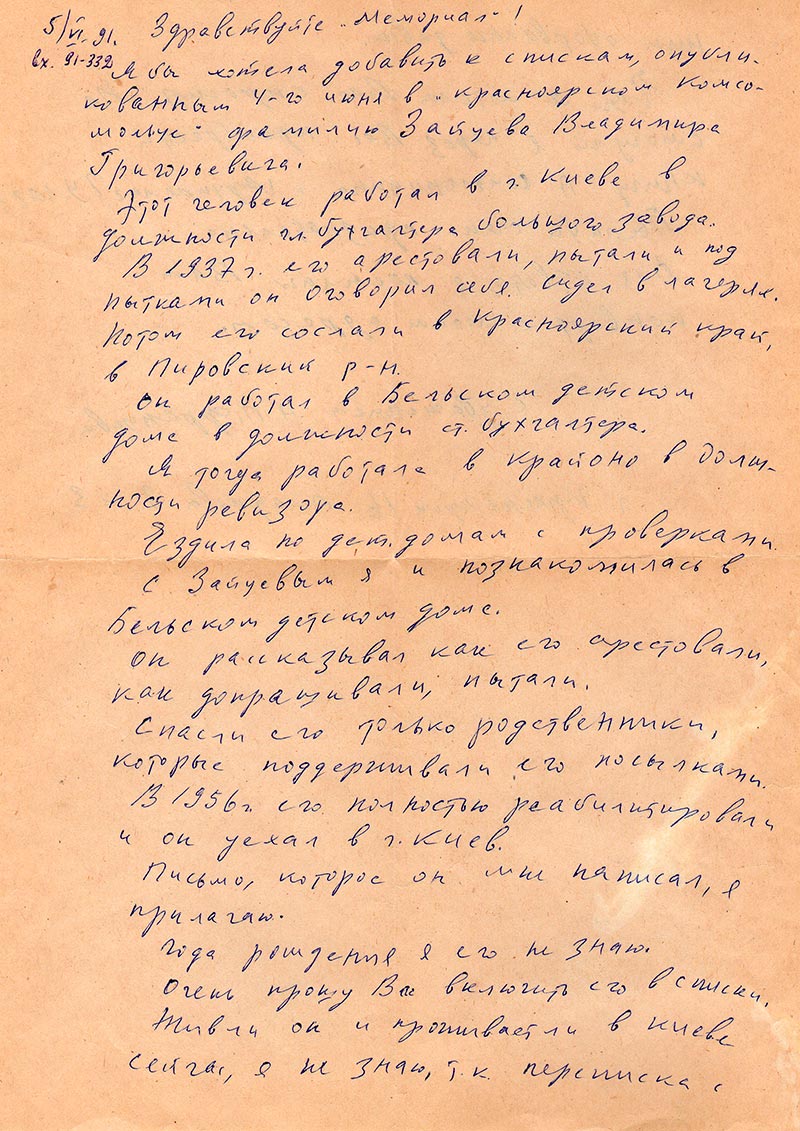 5/VI-91. Здравствуйте „Мемориал"!
вх. 91-332
Я бы хотела добавить к спискам, опубли-
кованным 4-го июня в „красноярском Комсо-
мольце" фамилию Зайцева Владимира
Григорьевича.
Этот человек работал в г. Киеве в
должности гл. бухгалтера большого завода.
В 1937 г. его арестовали, пытали и под
пытками он оговорил себя. Сидел в лагерях.
Потом его сослали в Красноярский край,
в Пировский р-н.
Он работал в Бельском детском
доме в должности ст. бухгалтера.
Я тогда работала в крайоно в долж-
ности ревизора.
Ездила по дет. домам с проверками.
с Зайцевым я и познакомилась в
Бельском детском доме.
Он рассказывал как его арестовали,
как допрашивали, пытали.
Спасли его только родственники,
которые поддерживали его посылками.
В 1956 г. его полностью реабилитировали
и он уехал в г. Киев.
Письмо, которое он мне написал, я
прилагаю.
Года рождения я его не знаю.
Очень прошу Вас включить его в списки.
Жив ли он и проживает ли в Киеве
сейчас, я не знаю, т.к. переписка с